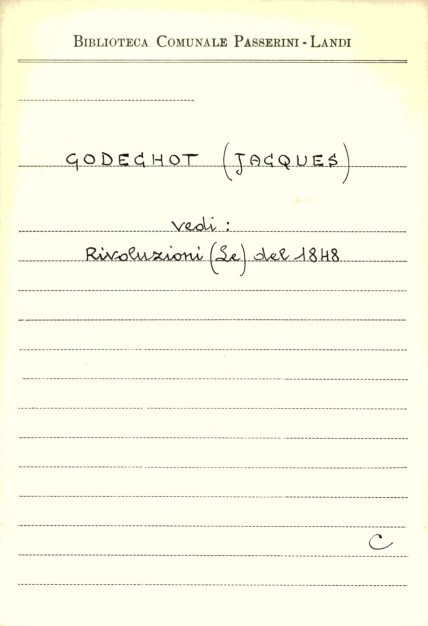 BIBLIOTECA COMUNALE PASSERINI - LANDI
GODECHOT (JACQUES)
vedi :
Rivoluzioni (Le) del 1848
C